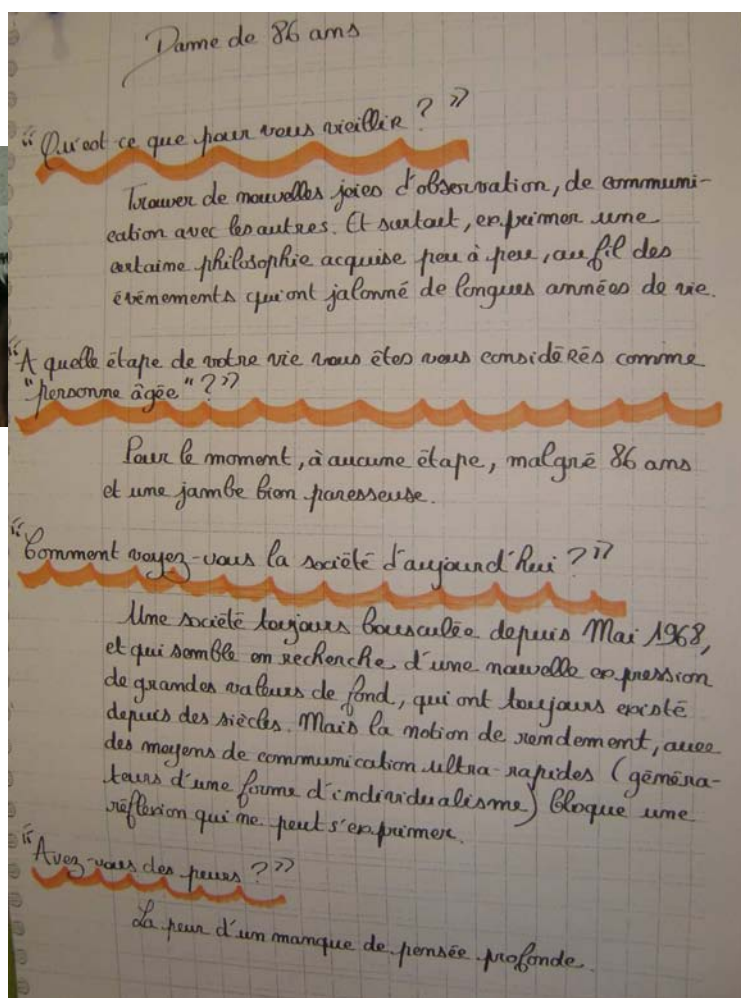 Dame de 86 ans
"Qu'est ce que pour vous vieillir ? »
Trouver de nouvelles joies d'observation, de communi-
cation avec les autres. Et surtout, exprimer une
certaine philosophie acquise peu à peu, au fil des
évènements qui ont jalonné de longues années de vie.
"A quelle étape de votre vie vous êtes vous considérés comme
"personne âgée" ? »
Pour le moment, à aucune étape, malgré 86 ans
et une jambe bien paresseuse.
"Comment voyez-vous la société d'aujourd'hui ? »
Une société toujours bousculée depuis Mai 1968,
et qui semble en recherche d'une nouvelle expression
de grandes valeurs de fond, qui ont toujours existé
depuis des siècles. Mais la notion de rendement, avec
des moyens de communication ultra-rapides (généra-
teurs d'une forme d'individualisme) bloque une
réflexion qui ne peut s'exprimer.
"Avez-vous des peures ? »
La peur d'un manque de pensée profonde.